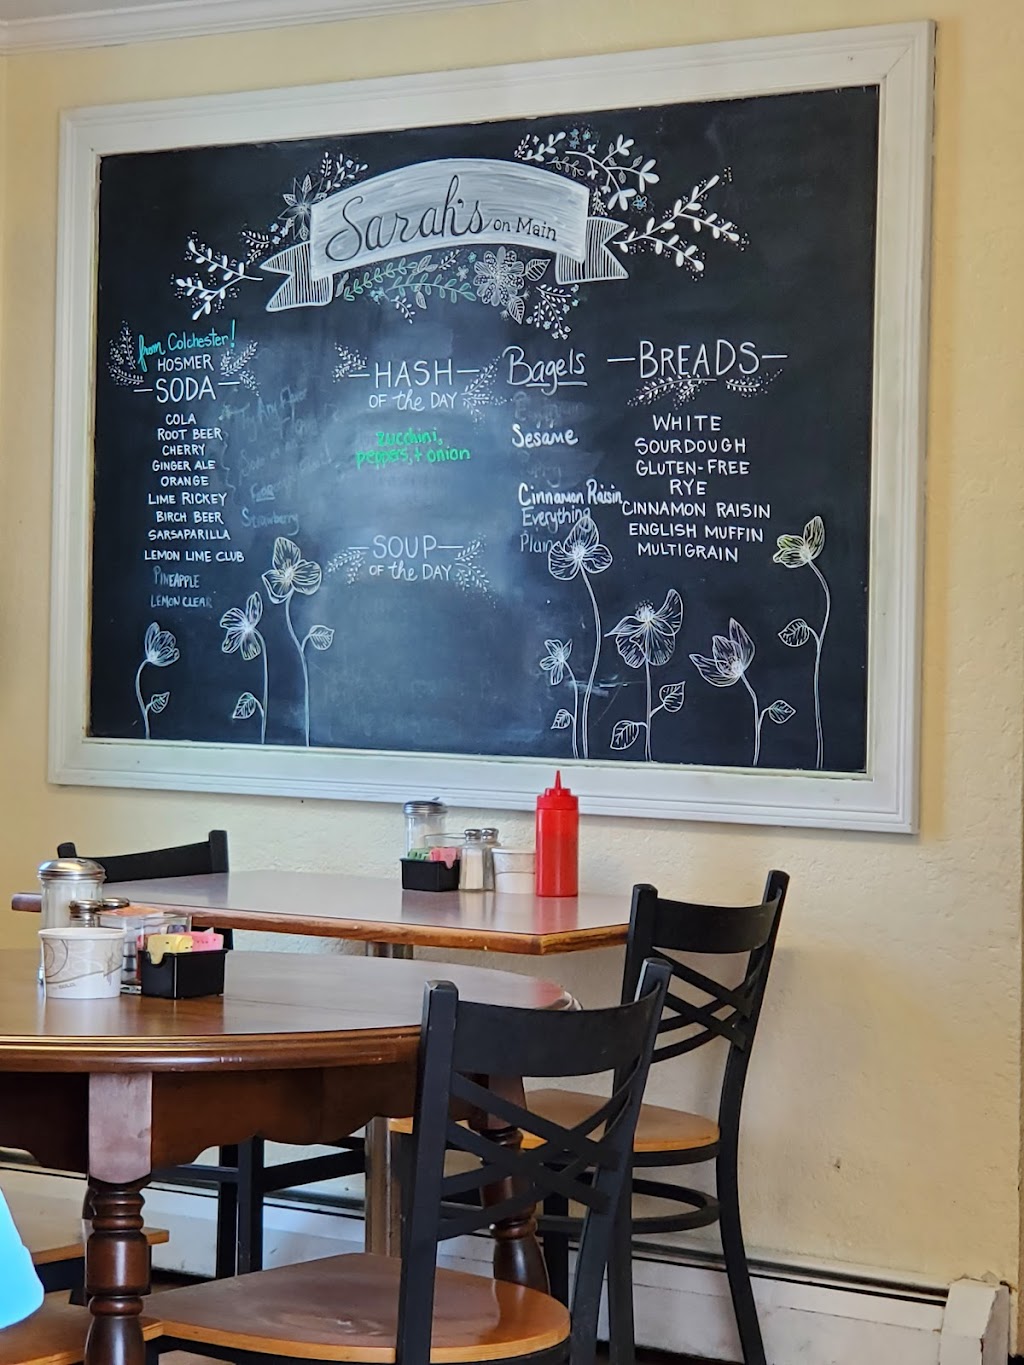 Sarah's on Main
from Colchester!
HOSMER
SODA
COLA
ROOT BEER
CHERRY
GINGER ALE
ORANGE
LIME RICKEY
BIRCH BEER
SARSAPARILLA
LEMON LIME CLUB
PINEAPPLE
LEMON CLEAR
Strawberry
HASH
OF the DAY
zucchini,
peppers, + onion
SOUP
OF the DAY
Bagels
Sesame
Cinnamon Raisin
Everything
Plain
BREADS
WHITE
SOURDOUGH
GLUTEN-FREE
RYE
CINNAMON RAISIN
ENGLISH MUFFIN
MULTIGRAIN